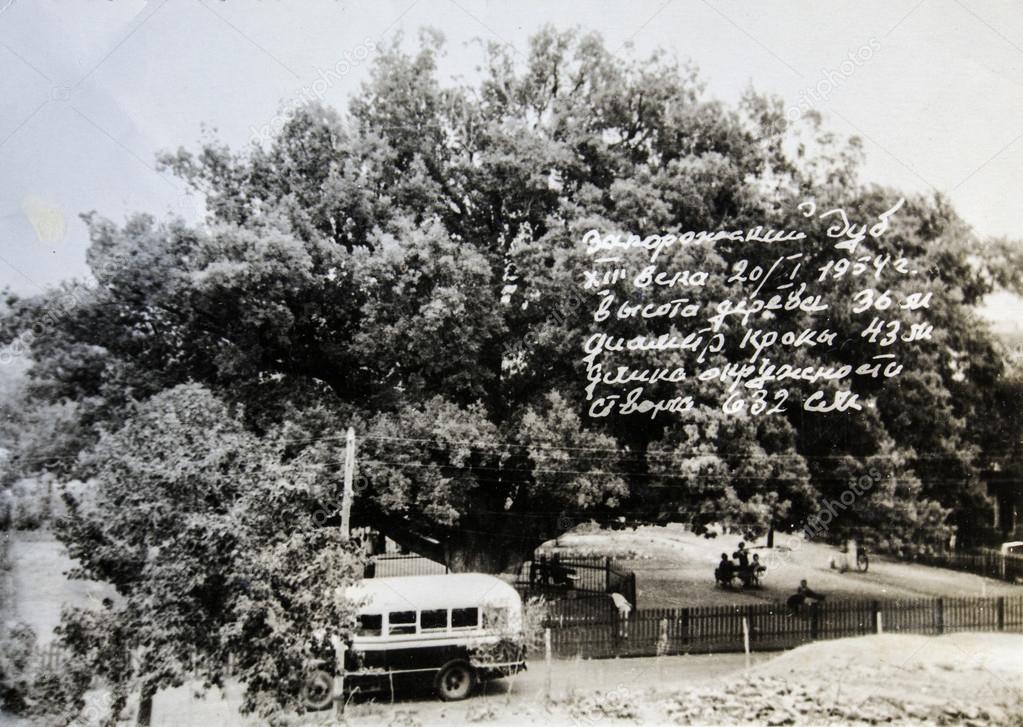 Запорожский Дуб
XIII века 20/I 1954г.
Высота дерева 36 м
диаметр кроны 43 м
длина окружности
ствола 632 см.